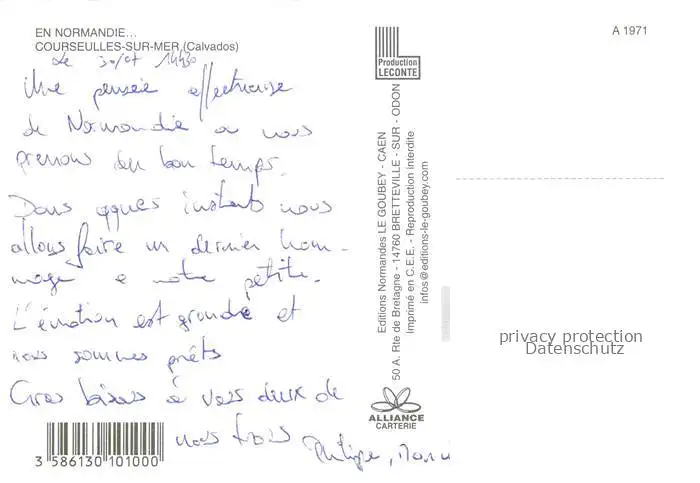 EN NORMANDIE...
COURSEULLES-SUR-MER (Calvados)
Le 30/07 14h30
Une pensée affectueuse
de Normandie où nous
prenons du bon temps.
Dans qques instants nous
allons faire un dernier hom-
mage à notre petite.
L'émotion est grande et
nous sommes prêts
Gros bisous à vous deux de
nous trois
Philippe,
3 586130 101000
Production
LECONTE
Editions Normandes LE GOUBEY - CAEN
50 A. Rte de Bretagne - 14760 BRETTEVILLE - SUR - ODON
Imprimé en C.E.E. - Reproduction interdite
infos@editions-le-goubey.com
ALLIANCE
CARTERIE
A 1971
privacy protection
Datenschutz